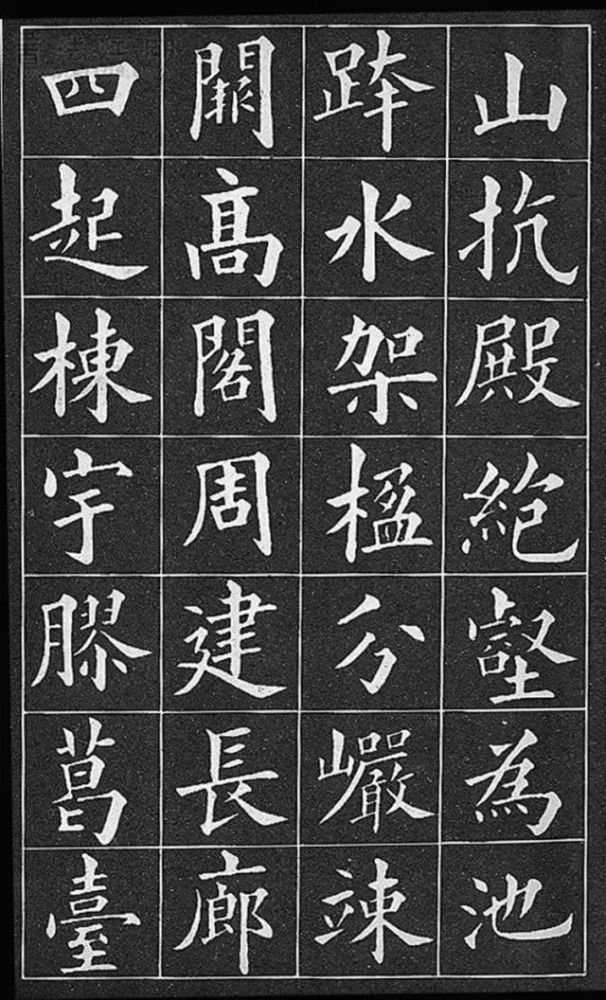 山抗殿絶壑為池
跨水架楹分巗竦
闕高閣周建長廊
四起棟宇膠葛臺